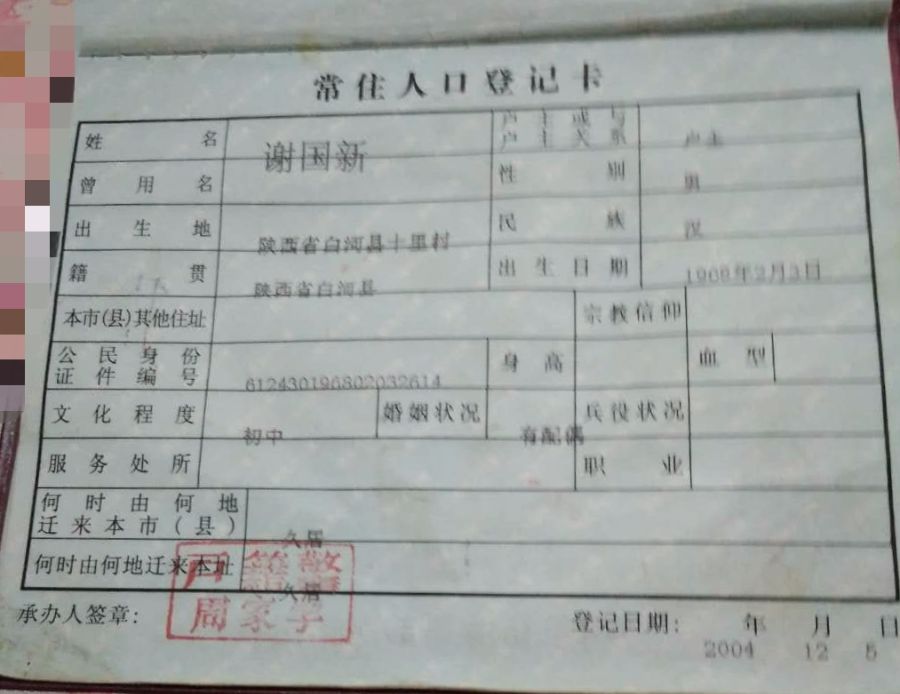 常住人口登记卡
姓名 谢国新 户主或与户主关系 户主
曾用名 性别 男
出生地 陕西省白河县十里村 民族 汉
籍贯 陕西省白河县 出生日期 1968年2月3日
本市(县)其他住址 宗教信仰
公民身份证件编号 612430196802032614 身高 血型
文化程度 初中 婚姻状况 有配偶 兵役状况
服务处所 职业
何时由何地迁来本市(县) 久居
何时由何地迁来本址 久居
承办人签章: 登记日期: 年 月 日
2004 12 5